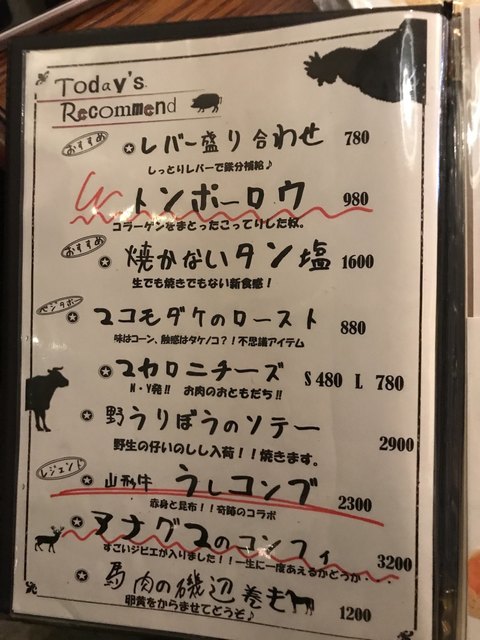 Today's
Recommend
おすすめ
レバー盛り合わせ 780
しっとりレバーで鉄分補給♪
トンポーロウ 980
コラーゲンをまとったこってりした奴。
おすすめ
焼かないタン塩 1600
生でも焼きでもない新食感！
ベジタボー
マコモダケのロースト 880
味はコーン、触感はタケノコ？！不思議アイテム
マカロニチーズ S 480 L 780
N・Y発!! お肉のおともだち!!
野うりぼうのソテー 2900
野生の仔いのしし入荷！！焼きます。
レジェンド
山形牛 うしコンブ 2300
赤身と昆布！！奇跡のコラボ
ヌナグマのコンフィ 3200
すごいジビエが入りました！！一生に一度あえるかどうか・・・
馬肉の磯辺巻き 1200
卵黄をからませてどうぞ♪